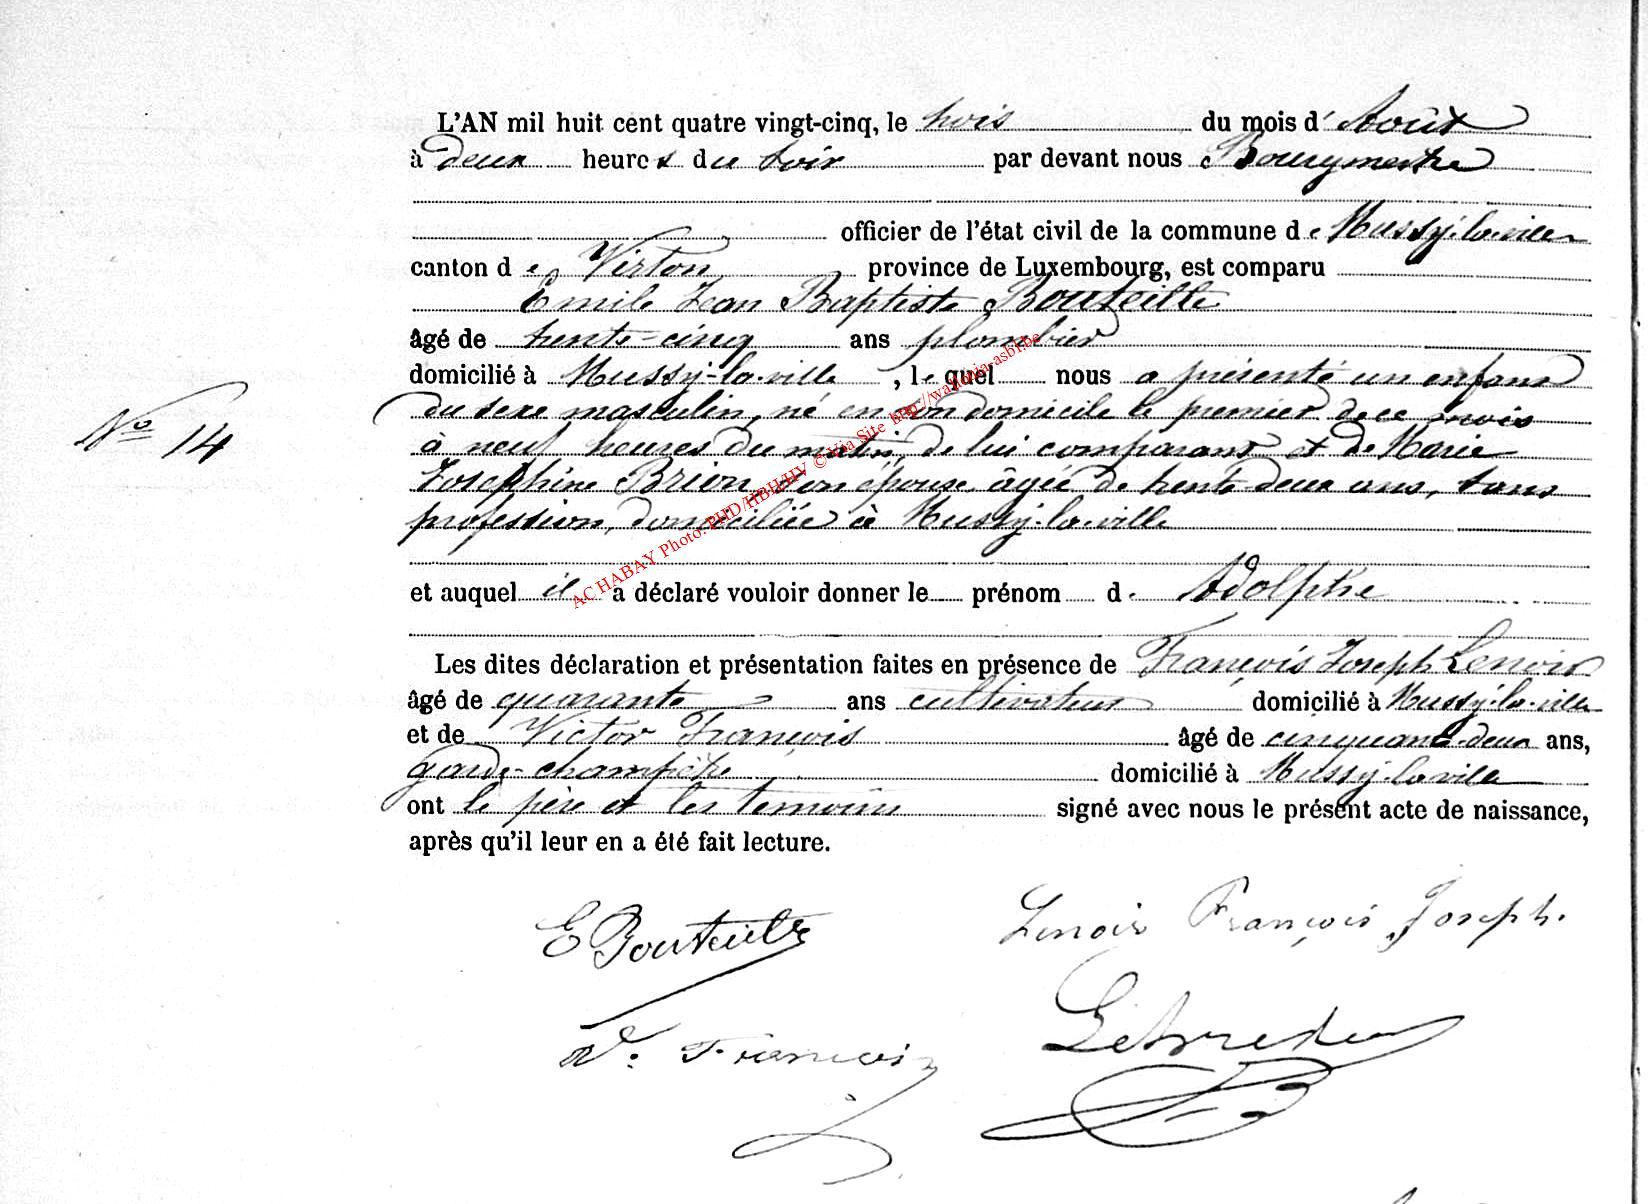 L'AN mil huit cent quatre vingt-cinq, le trois du mois d' Août
à deux heures du soir par devant nous Bourgmestre
officier de l'état civil de la commune de Mussy-la-ville
canton de Virton province de Luxembourg, est comparu
Emile Jean Baptiste Bouteille
âgé de trente-cinq ans plombier
domicilié à Mussy-la-ville, lequel nous a présenté un enfant
du sexe masculin, né en son domicile le premier de ce mois
N° 14
à neuf heures du matin, de lui comparant et de Marie
Josephine Brion, son épouse, âgée de trente deux ans, sans
profession, domiciliée à Mussy-la-ville
et auquel il a déclaré vouloir donner le prénom d. Adolphe
Les dites déclaration et présentation faites en présence de François Joseph Lenoir
âgé de quarante ans cultivateur domicilié à Mussy-la-ville
et de Victor François âgé de cinquante-deux ans,
garde-champêtre domicilié à Mussy-la-ville
ont le père et les temoins signé avec nous le présent acte de naissance,
après qu'il leur en a été fait lecture.
E Bouteille Lenoir François Joseph.
V. François
AC HABAY Photo: PHD/HBH/HV © Via Site http://wallonia-asbl.be